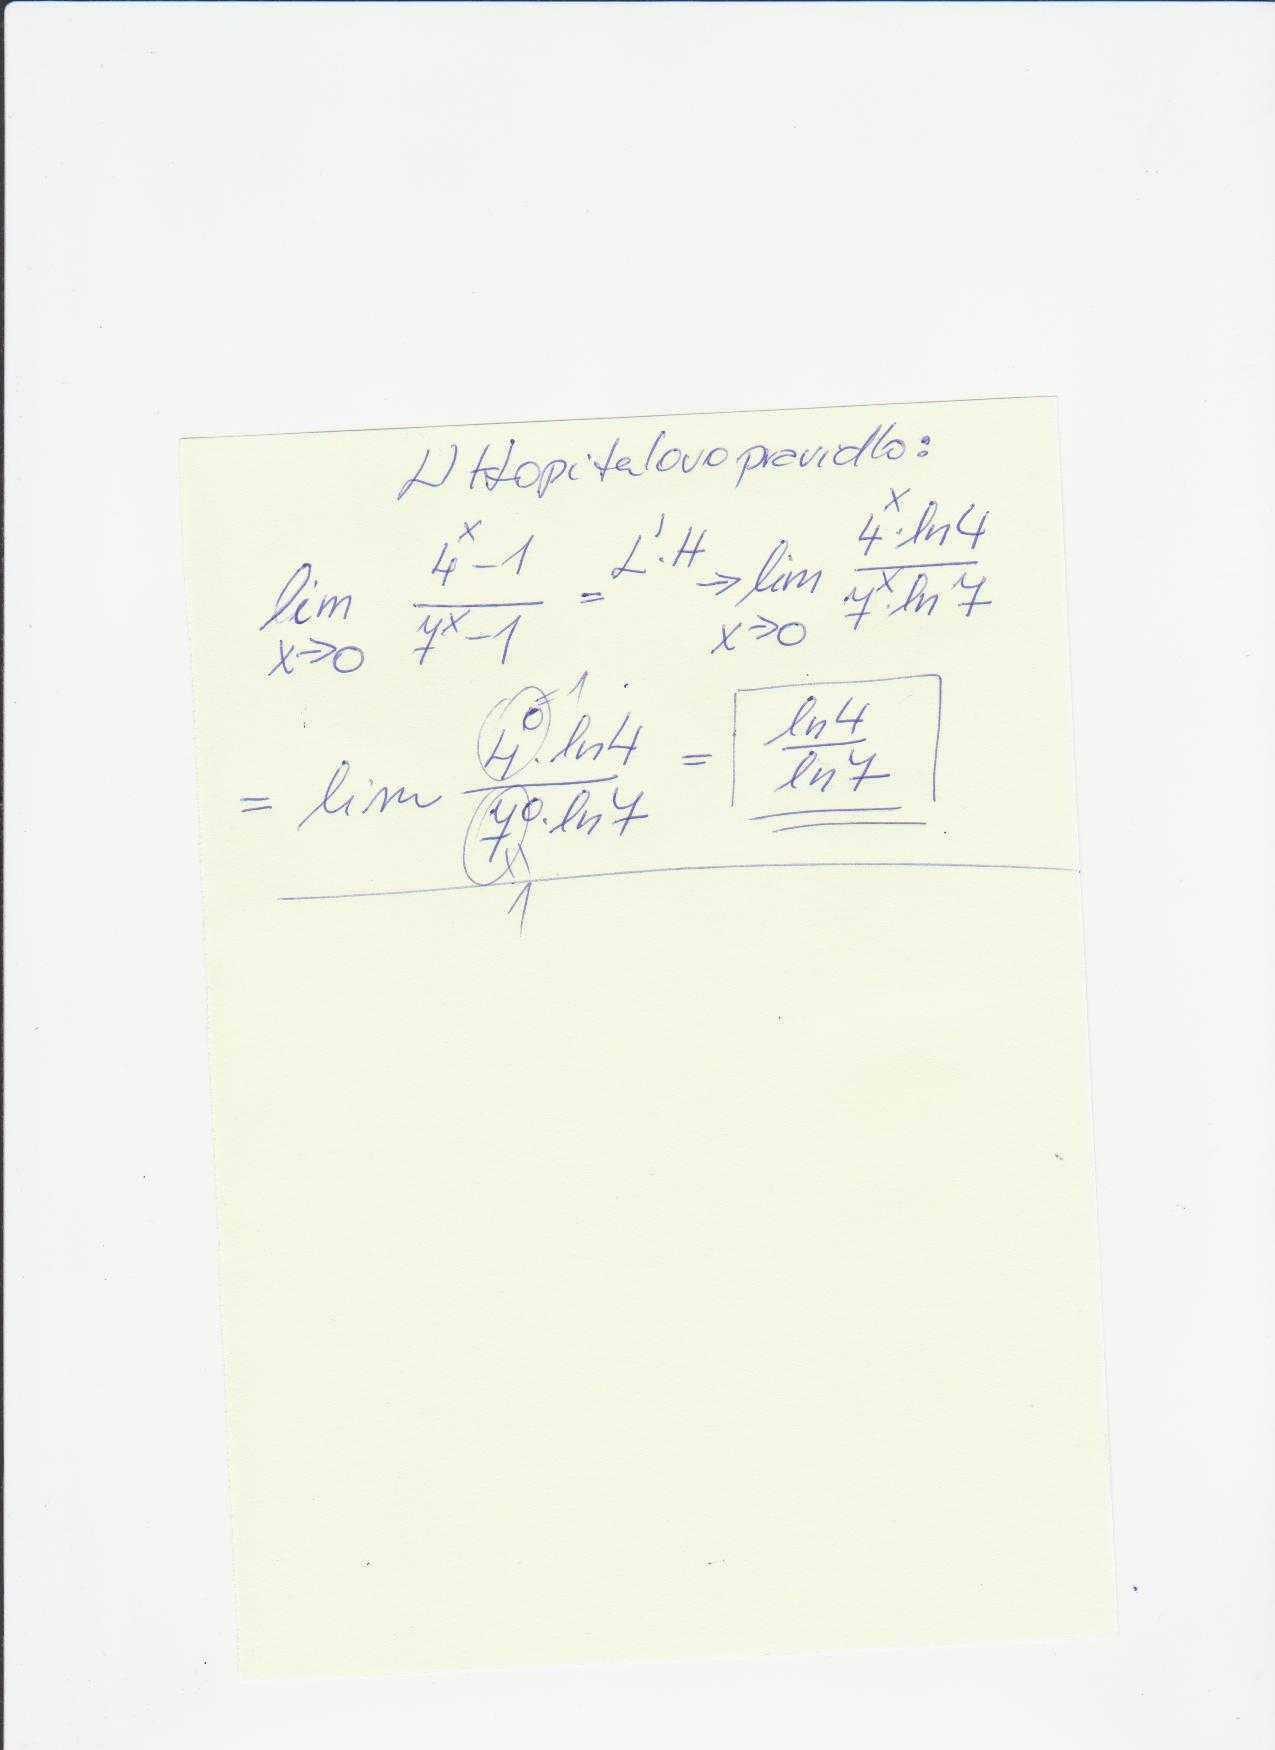 L'Hopitalovo pravidlo:
lim x→0 (4^x - 1)/(7^x - 1) = L'.H → lim x→0 (4^x · ln4)/(7^x · ln7)
= lim (4^0 · ln4)/(7^0 · ln7) = ln4/ln7
=1
1